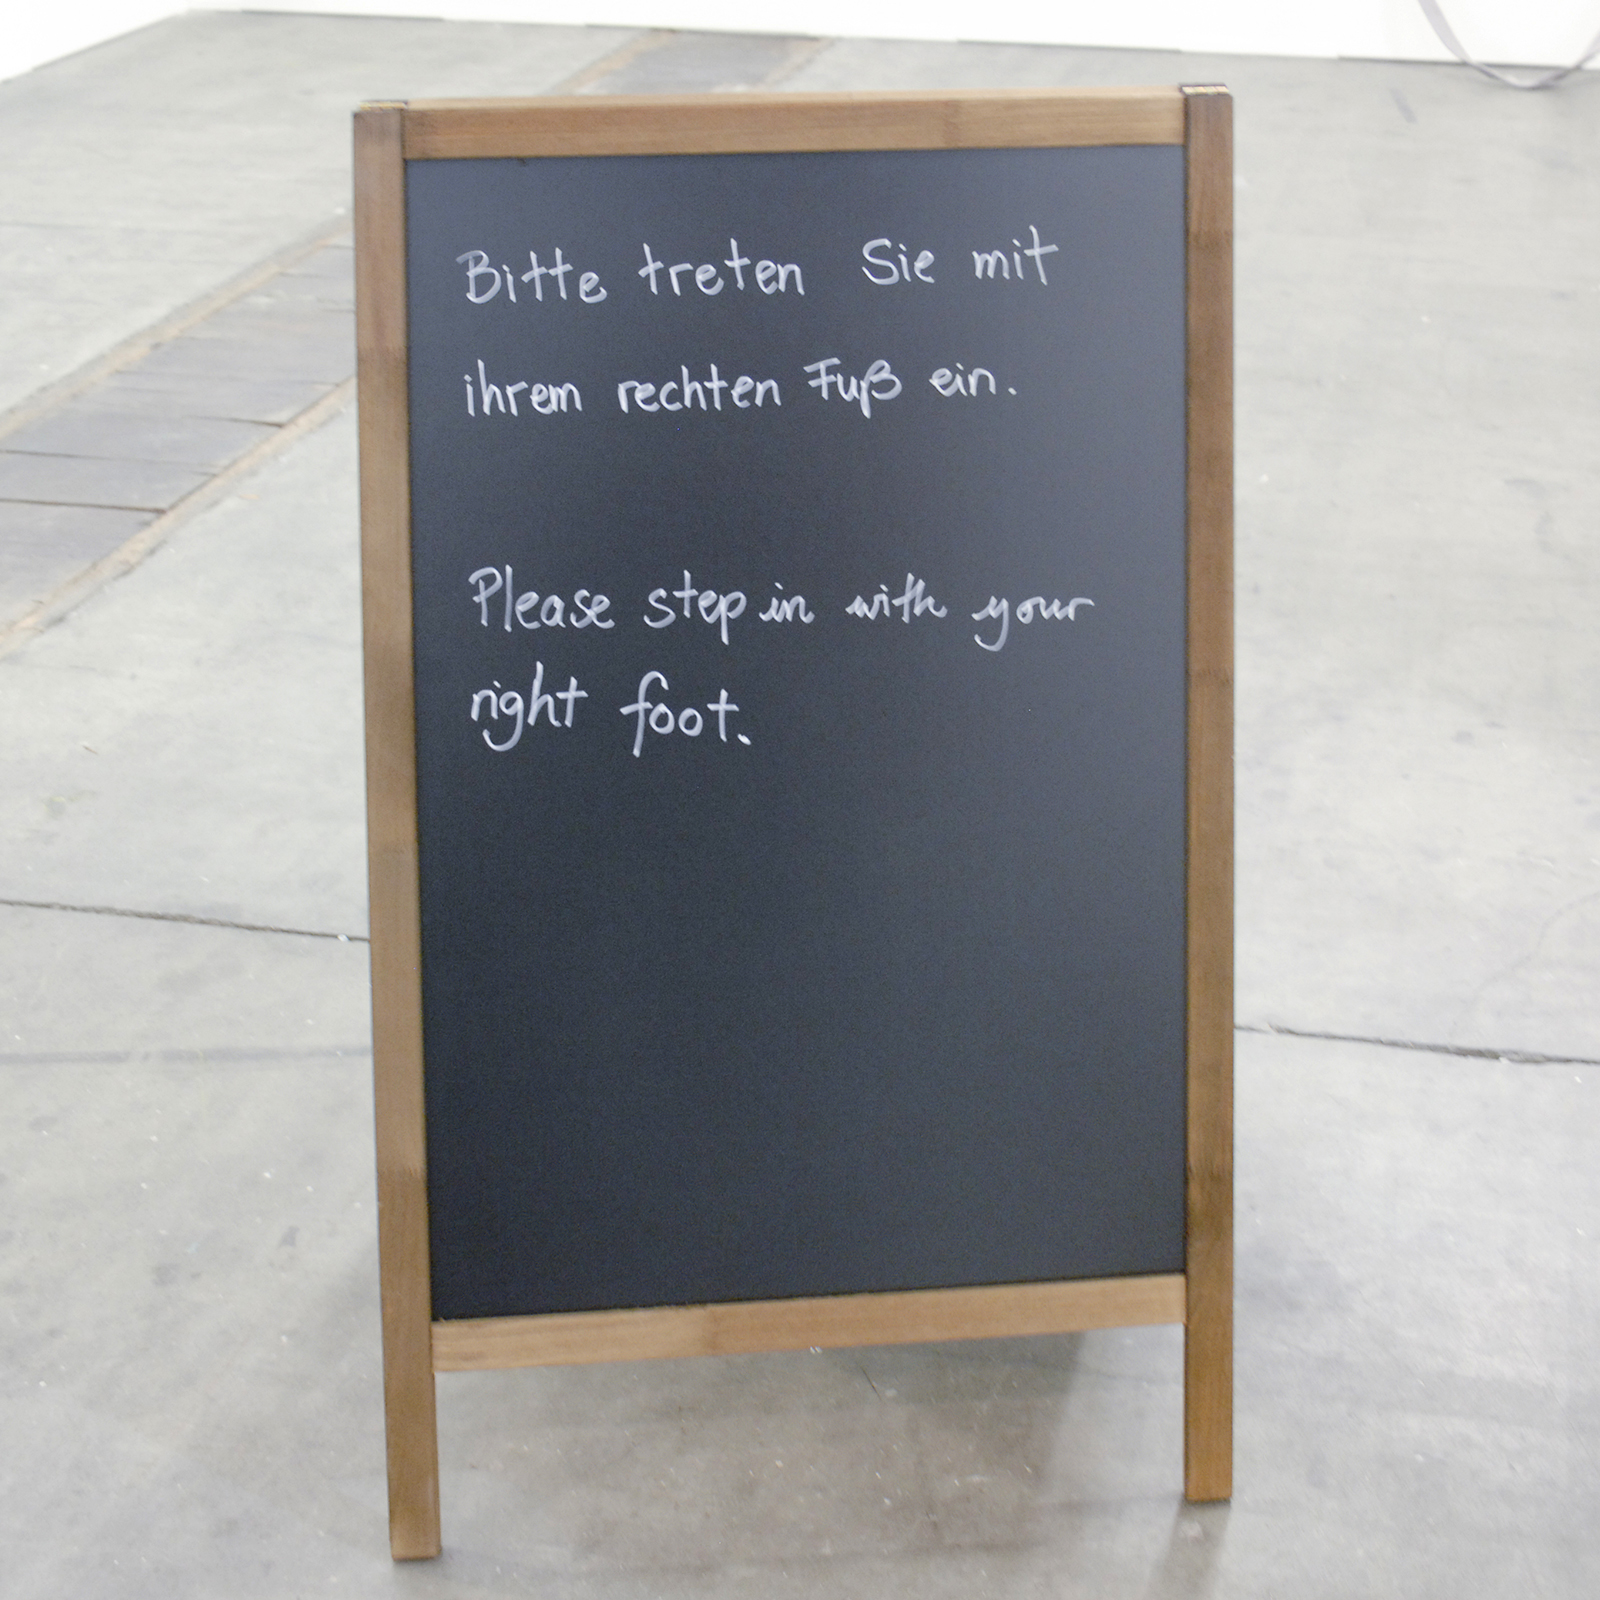 Bitte treten Sie mit
ihrem rechten Fuß ein.
Please step in with your
right foot.